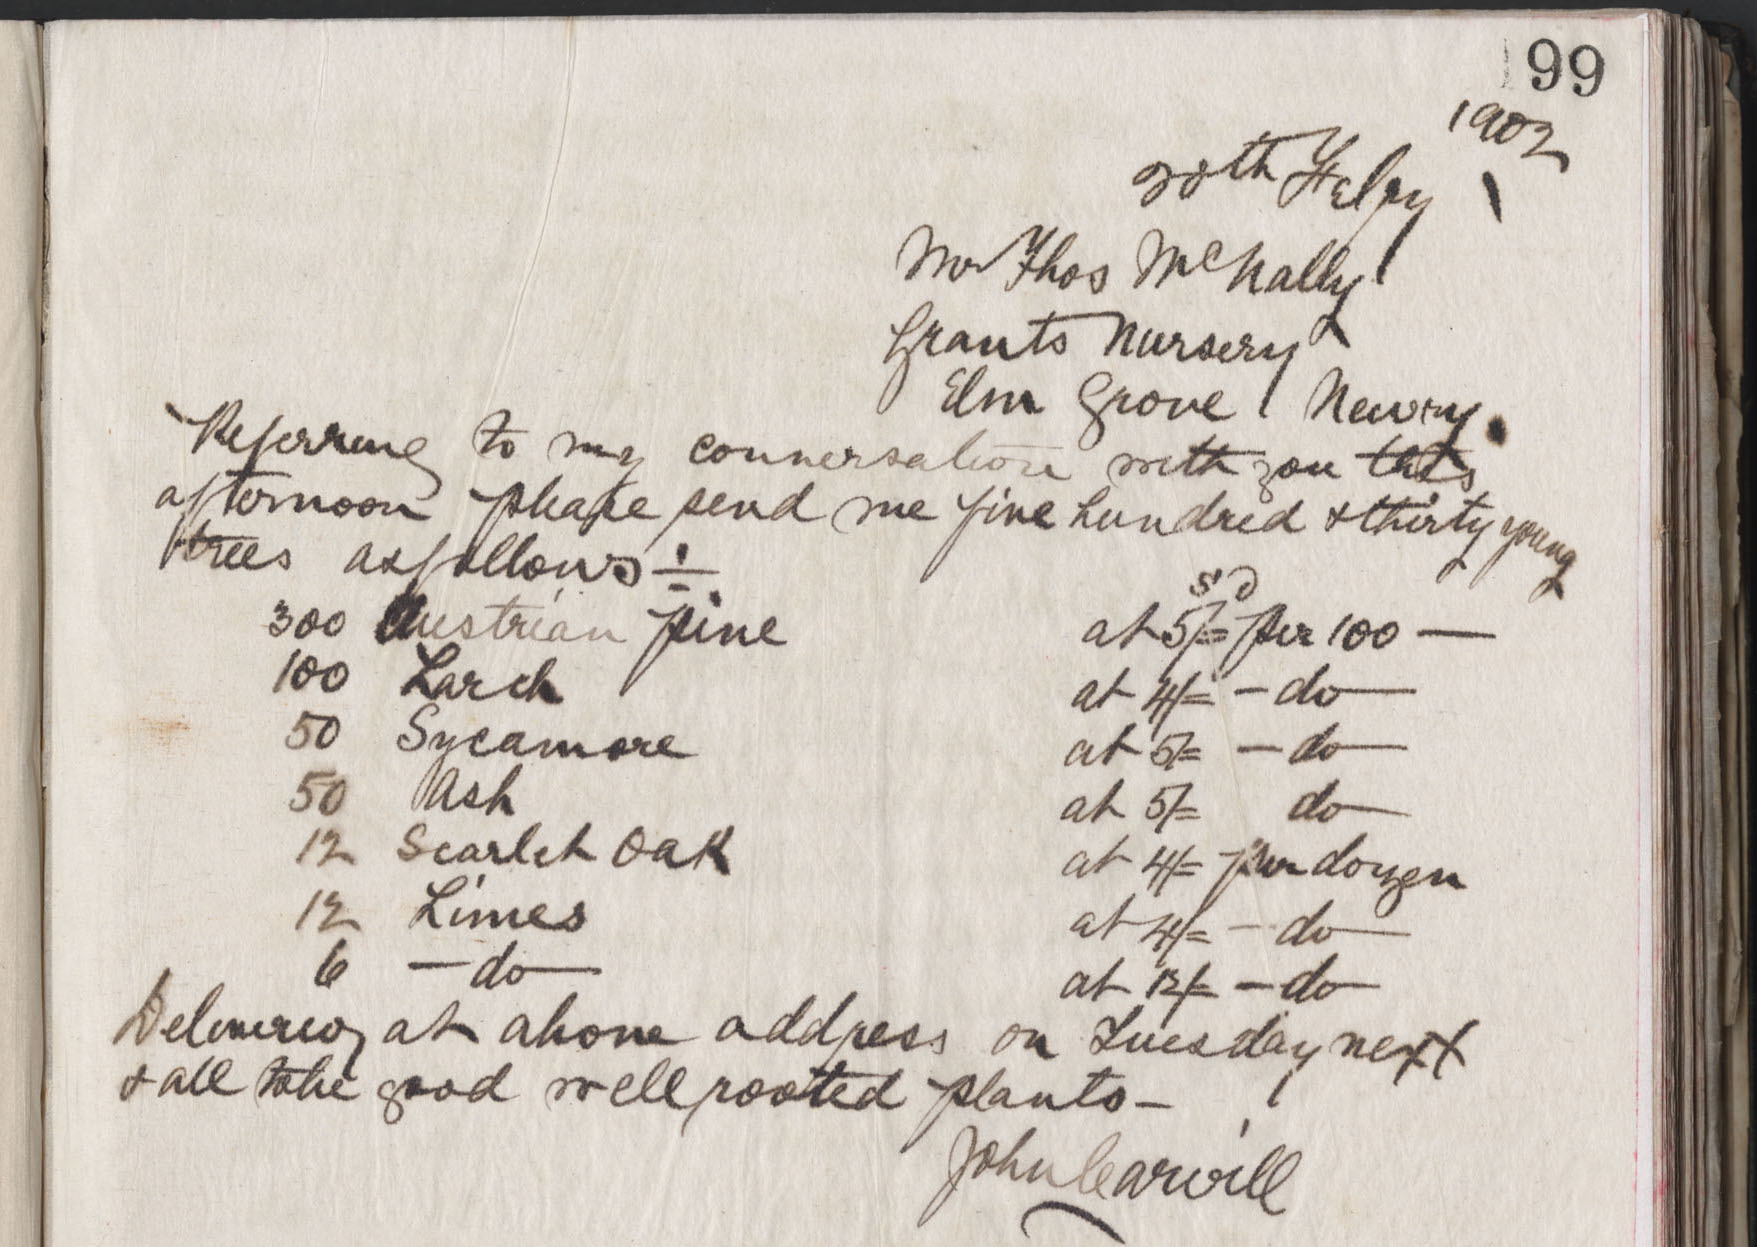 99
1902
20th Feby
Mr Thos McNally
Grants Nursery
Elm Grove Newry.
Referring to my conversation with you this
afternoon please send me five hundred & thirty young
trees as follows ÷
s d
300 Austrian pine at 5/= per 100 —
100 Larch at 4/= — do —
50 Sycamore at 5/= — do —
50 Ash at 5/= do —
12 Scarlet Oak at 4/= per dozen
12 Limes at 4/= — do —
6 — do — at 12/= — do —
Delivering at above address on Tuesday next
& all to be good well rooted plants —
John Carvill